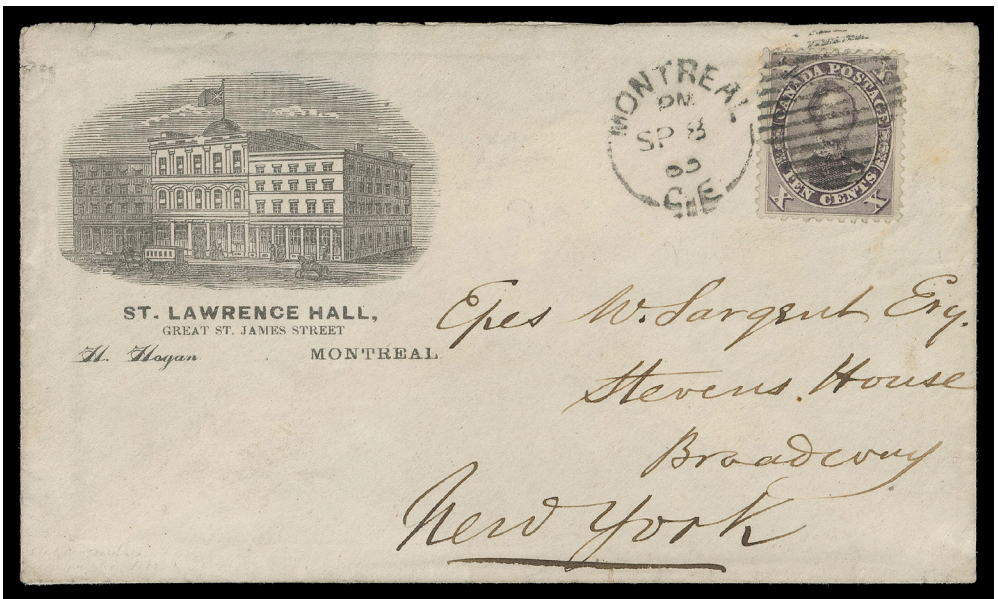 ST. LAWRENCE HALL,
GREAT ST. JAMES STREET
H. Hogan MONTREAL
MONTREAL
PM
SP 8
C.E
CANADA POSTAGE
TEN CENTS
X X
Epes W. Sargent Esq.
Stevens House
Broadway
New York